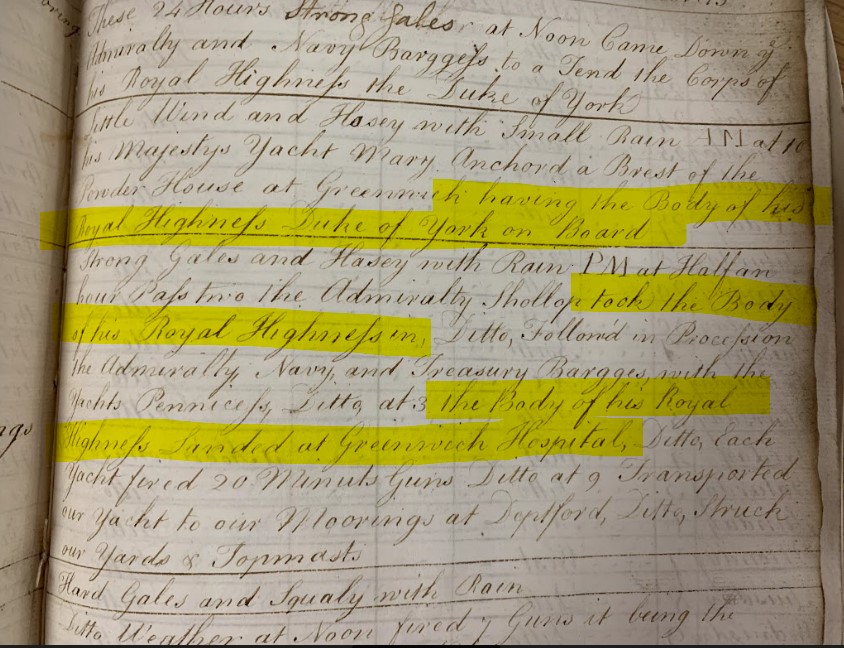 These 24 Hours Strong Gales at Noon Came Down ye
Admiralty and Navy Bargges to a Tend the Corps of
his Royal Highness the Duke of York
little Wind and Hasey with Small Rain at 10
his Majestys Yacht Mary Anchord a Brest of the
Powder House at Greenwich having the Body of his
Royal Highness Duke of York on Board
Strong Gales and Hasey with Rain PM at Half an
hour Pass two the Admiralty Shollop took the Body
of his Royal Highness in, Ditto, Follow'd in Procession
the Admiralty, Navy, and Treasury Bargges, with the
Yachts Pennicess, Ditto, at 3 the Body of his Royal
Highness Landed at Greenwich Hospital, Ditto, Each
Yacht fired 20 Minuts Guns Ditto at 9 Transported
our Yacht to our Moorings at Deptford, Ditto, Struck
our Yards & Topmasts
Hard Gales and Squaly with Rain
Ditto Weather at Noon fired 7 Guns it being the